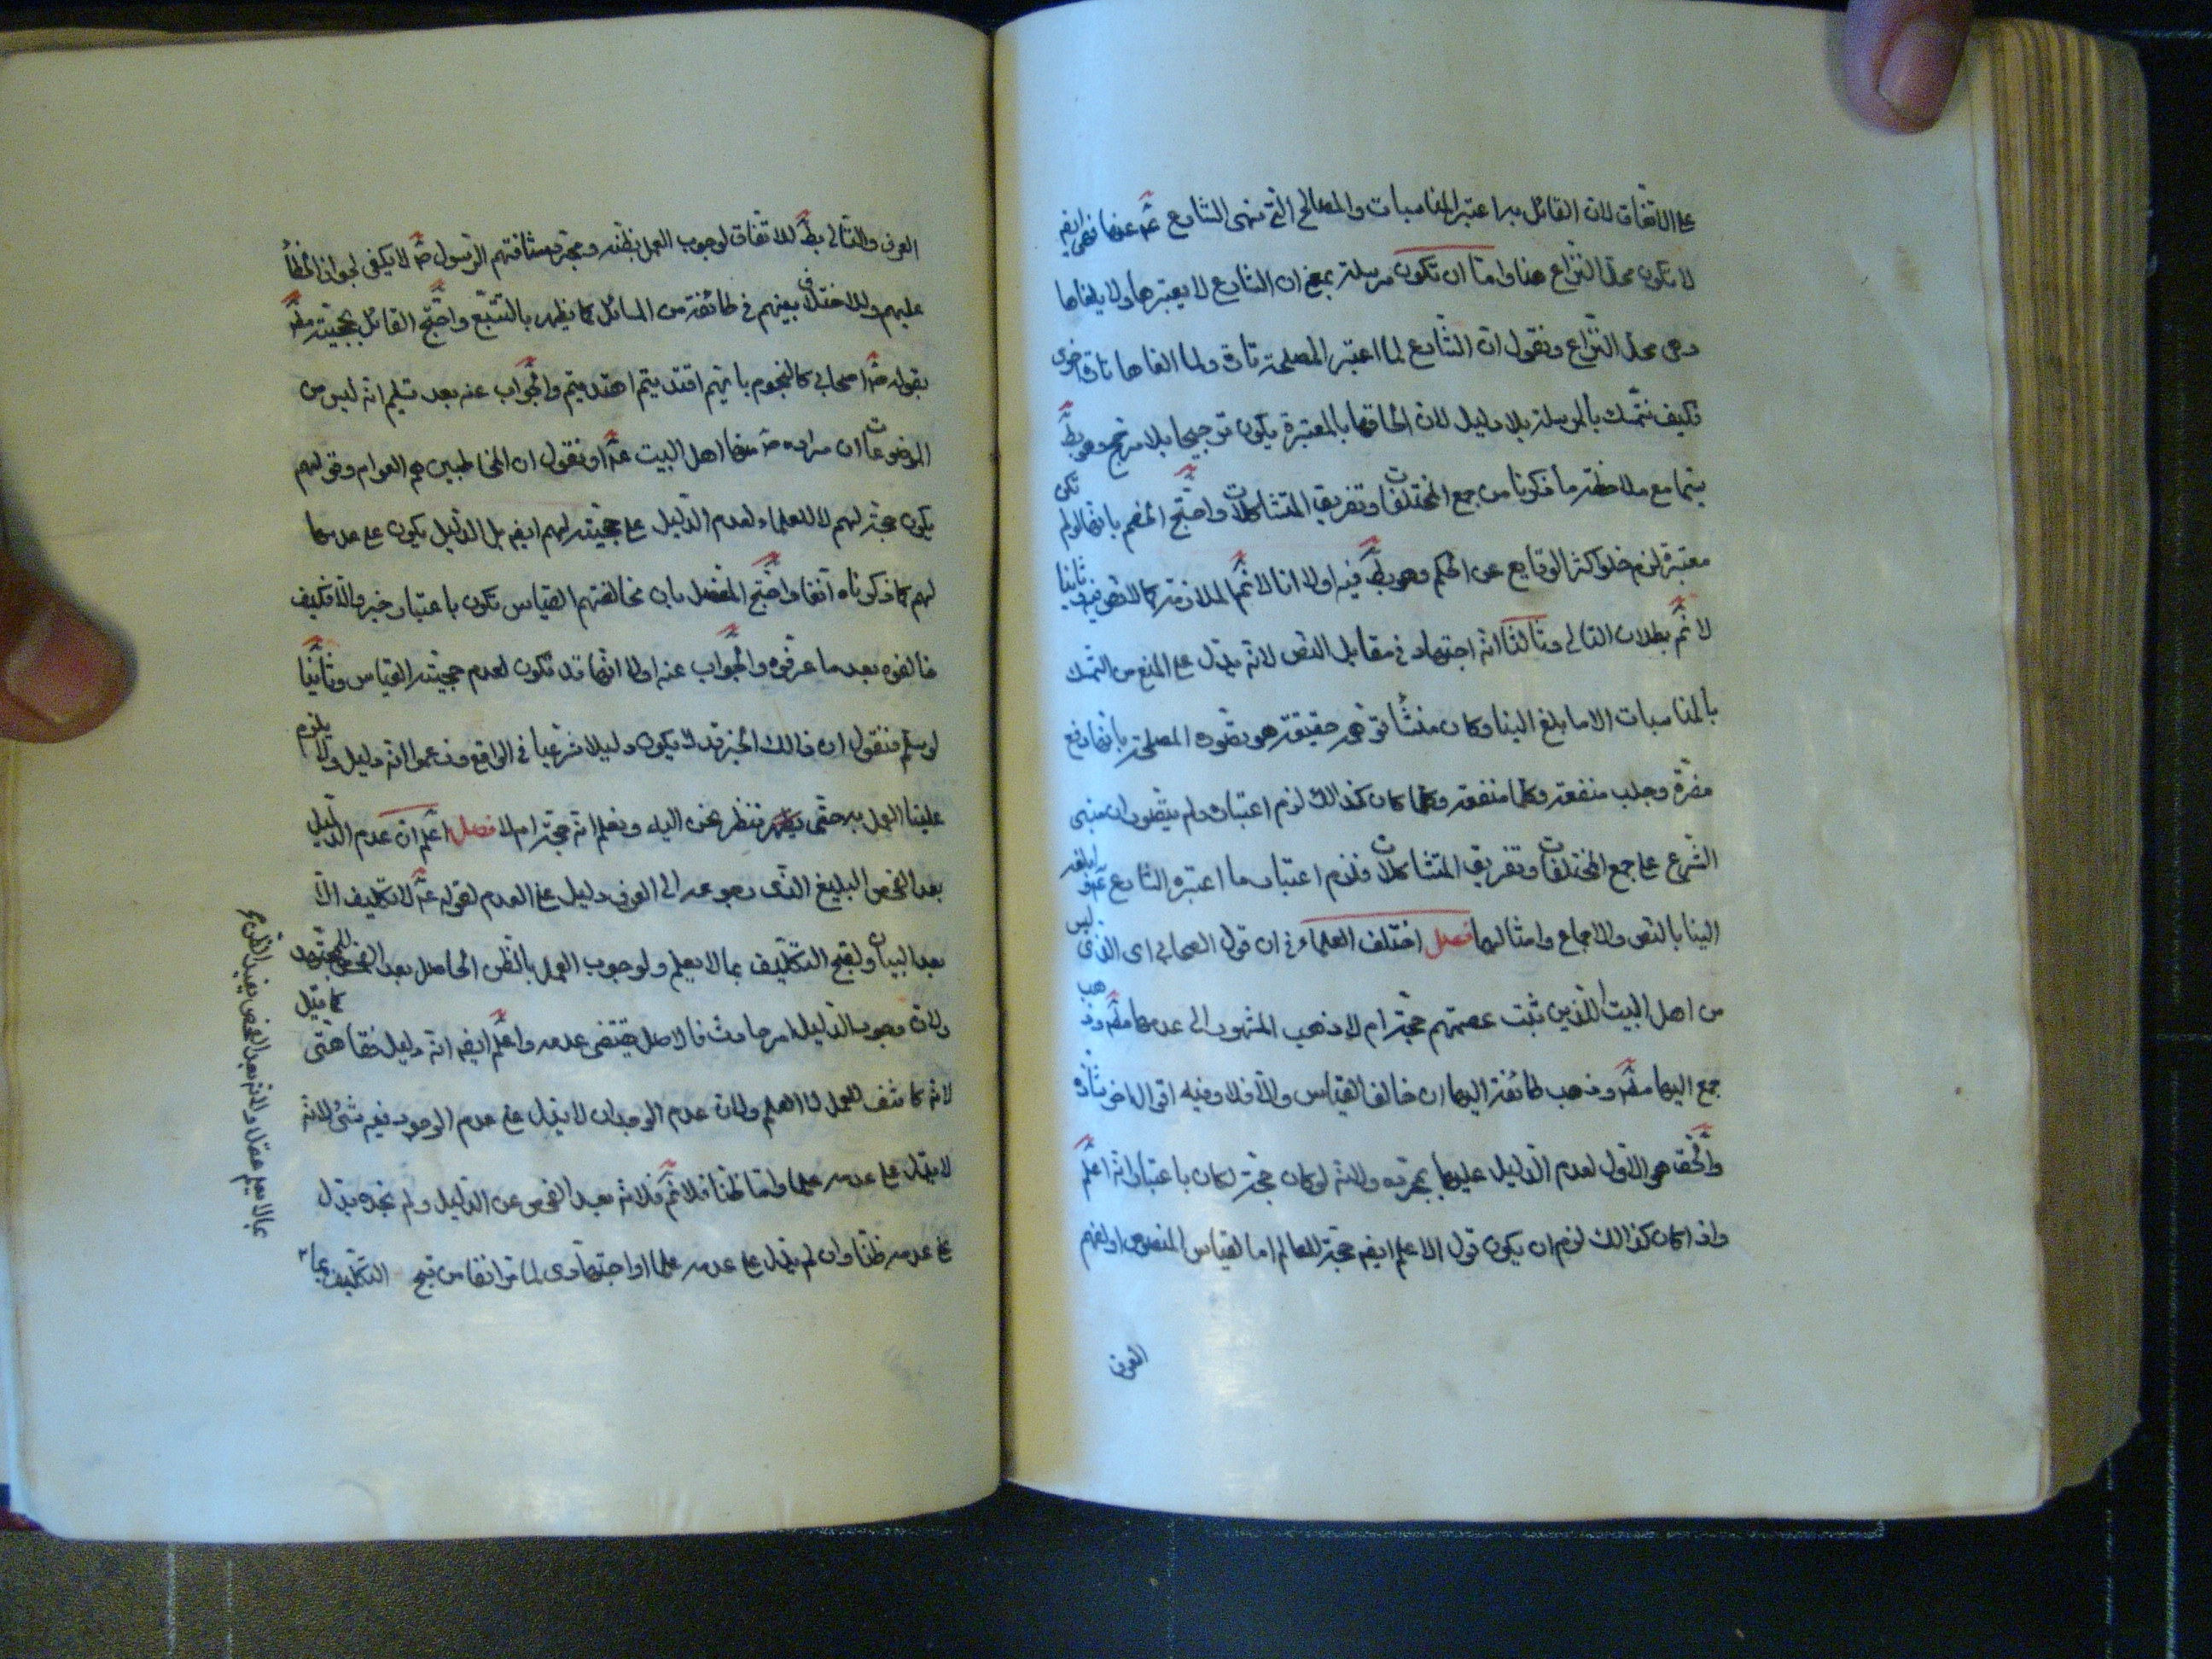 على الاتفاق لان القائل به اعتبر المناسبات والمصالح التي نهى الشارع عنها فهي ايضا
لا تكون محل النزاع هنا واما ان تكون مرسلة بمعنى ان الشارع لا يعتبرها ولا يلغاها
وهي محل النزاع ونقول ان الشارع لما اعتبر المصلحة تارة ولما الغاها تارة اخرى
فكيف نتمسك بالمرسلة بلا دليل لان الحاقها بالمعتبرة يكون ترجيحا بلا مرجح وهو بط
سيما مع ملاحظة ما ذكرنا من جمع المختلفات وتفريق المتشاكلات واحتج الخصم بانها لو لم تكن
معتبرة لزم خلو اكثر الوقايع عن الحكم وهو بط فيه اولا انا لا نم الملازمة وثانيا
لا نم بطلان التالي وثالثا انه اجتهاد في مقابل النص لانه يدل على المنع من التمسك
بالمناسبات الا ما بلغ الينا وكان منشأ توهم حقيقة هو تصوره المصلحة بانها دفع
مضرة وجلب منفعة وكلما كان كذالك لزم اعتباره ولم يتصور ان مبنى
الشرع على جمع المختلفات وتفريق المتشاكلات فلزم اعتبار ما اعتبره الشارع
الينا بالنص والاجماع وامثالهما فصل اختلف العلماء في ان قول الصحابي اي الذي ليس
من اهل البيت الذين ثبت عصمتهم حجة ام لا وذهب المشهور الى عدمها مط وذهب
جمع اليها مط وذهب طائفة اليها ان خالف القياس والا فلا وفيه اقوال اخر شاذة
والحق هو الاول لعدم الدليل عليها بمجرده ولانه لو كان حجة لكان باعتبار انه اعلم
واذا كان كذالك لزم ان يكون قول الاعلم ايضا حجة للعالم اما لقياس المنصوص او لفهم
العرف
العرف والتالي بط للاتفاق لوجوب العمل بظنه ومجرد مشافهتهم الرسول ص لا يكفي لجواز الخطأ
عليهم وللاختلاف بينهم في طائفة من المسائل كما يظهر بالتتبع واحتج القائل بحجيته مط
بقوله ص اصحابي كالنجوم بايهم اقتديتم اهتديتم والجواب عنه بعد تسليم انه ليس من
الموضوعات ان مراده ص منها اهل البيت او نقول ان المخاطبين هم العوام وقولهم
يكون حجة لهم لا للعلماء لعدم الدليل على حجيته لهم ايضا بل الدليل يكون على عدمها
لهم كما ذكرناه آنفا واحتج المفصل بان مخالفتهم القياس تكون باعتبار خبر والا فكيف
خالفوه بعد ما عرفوه والجواب عنه اولا انها قد تكون لعدم حجيته القياس وثانيا
لو سلم فنقول ان ذالك الخبر قد لا يكون دليلا شرعيا في الواقع وزعموا انه دليل ولا يلزم
علينا العمل به حتى ننظر نحن اليه ونعلم انه حجة ام لا فصل اعلم ان عدم الدليل
بعد الفحص البليغ الذي رجوعه الى العرف دليل على العدم لقوله لا تكليف الا
بعد البيان ولقبح التكليف بما لا يعلم ولوجوب العمل بالظن الحاصل بعد الفحص للمجتهد
ولان وجود الدليل امر حادث فالاصل يقتضي عدمه واعلم ايضا انه دليل فقاهتي كما قيل
لانه كاشف للعمل لا العلم ولان عدم الوجدان لا يدل على عدم الوجود فيه شئ لانه
لا يدل على عدمه علما واما ظنا فلا نم فلانه بعد الفحص عن الدليل ولم نجده يدل
على عدمه ظنا وان لم يدل على عدمه علما او اجتهادي لما مر آنفا من قبح التكليف بما
بما لا يعلم عقلا ولانه بعد الفحص يفيد الظن